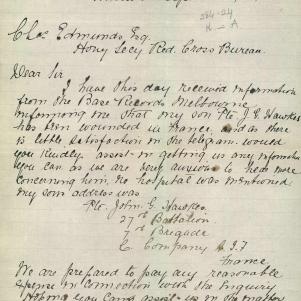 584-24
Chas Edmunds Esq.
Hony Secy Red. Cross Bureau.
Dear Sir
I have this day received information
from the Base Records Melbourne
informing me that my son Pte J. G. Hawkes
has been wounded in France, and as there
is little satisfaction in the telegram. would
you kindly assist in getting us any information
you can as we are very anxious to hear more
concerning him, No hospital was mentioned
my sons address was
Pte. John. G. Hawkes.
27th Battalion
7th Brigade
C Company A.I.F
France
We are prepared to pay any reasonable
expense in connection with the Enquiry
you can assist us in the matter